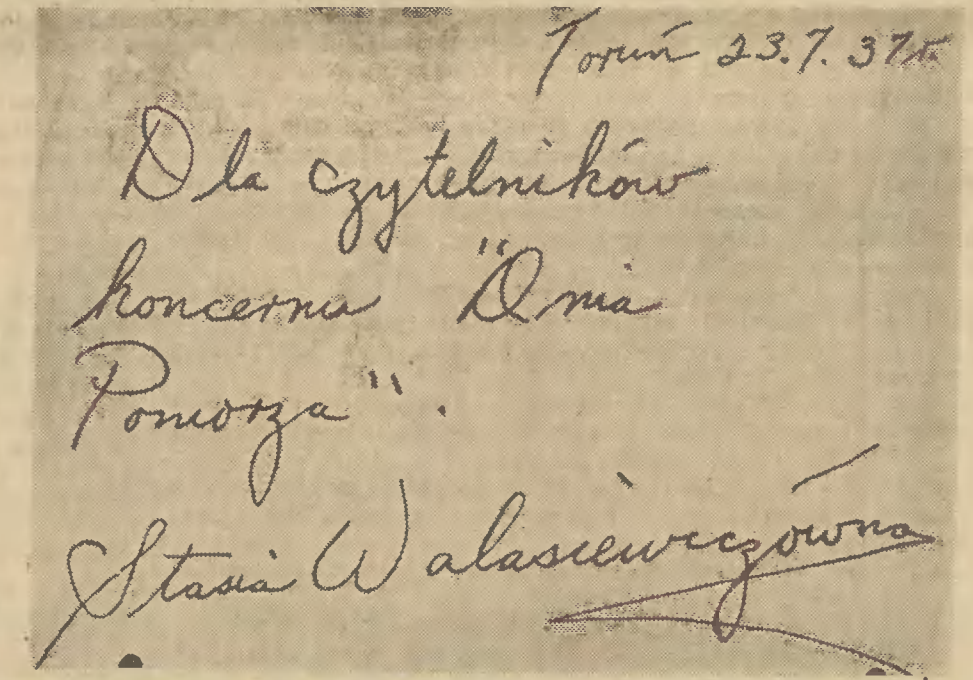 Toruń 23.7.37r.
Dla czytelników
koncernu "Dnia
Pomorza".
Stasia Walasiewiczówna